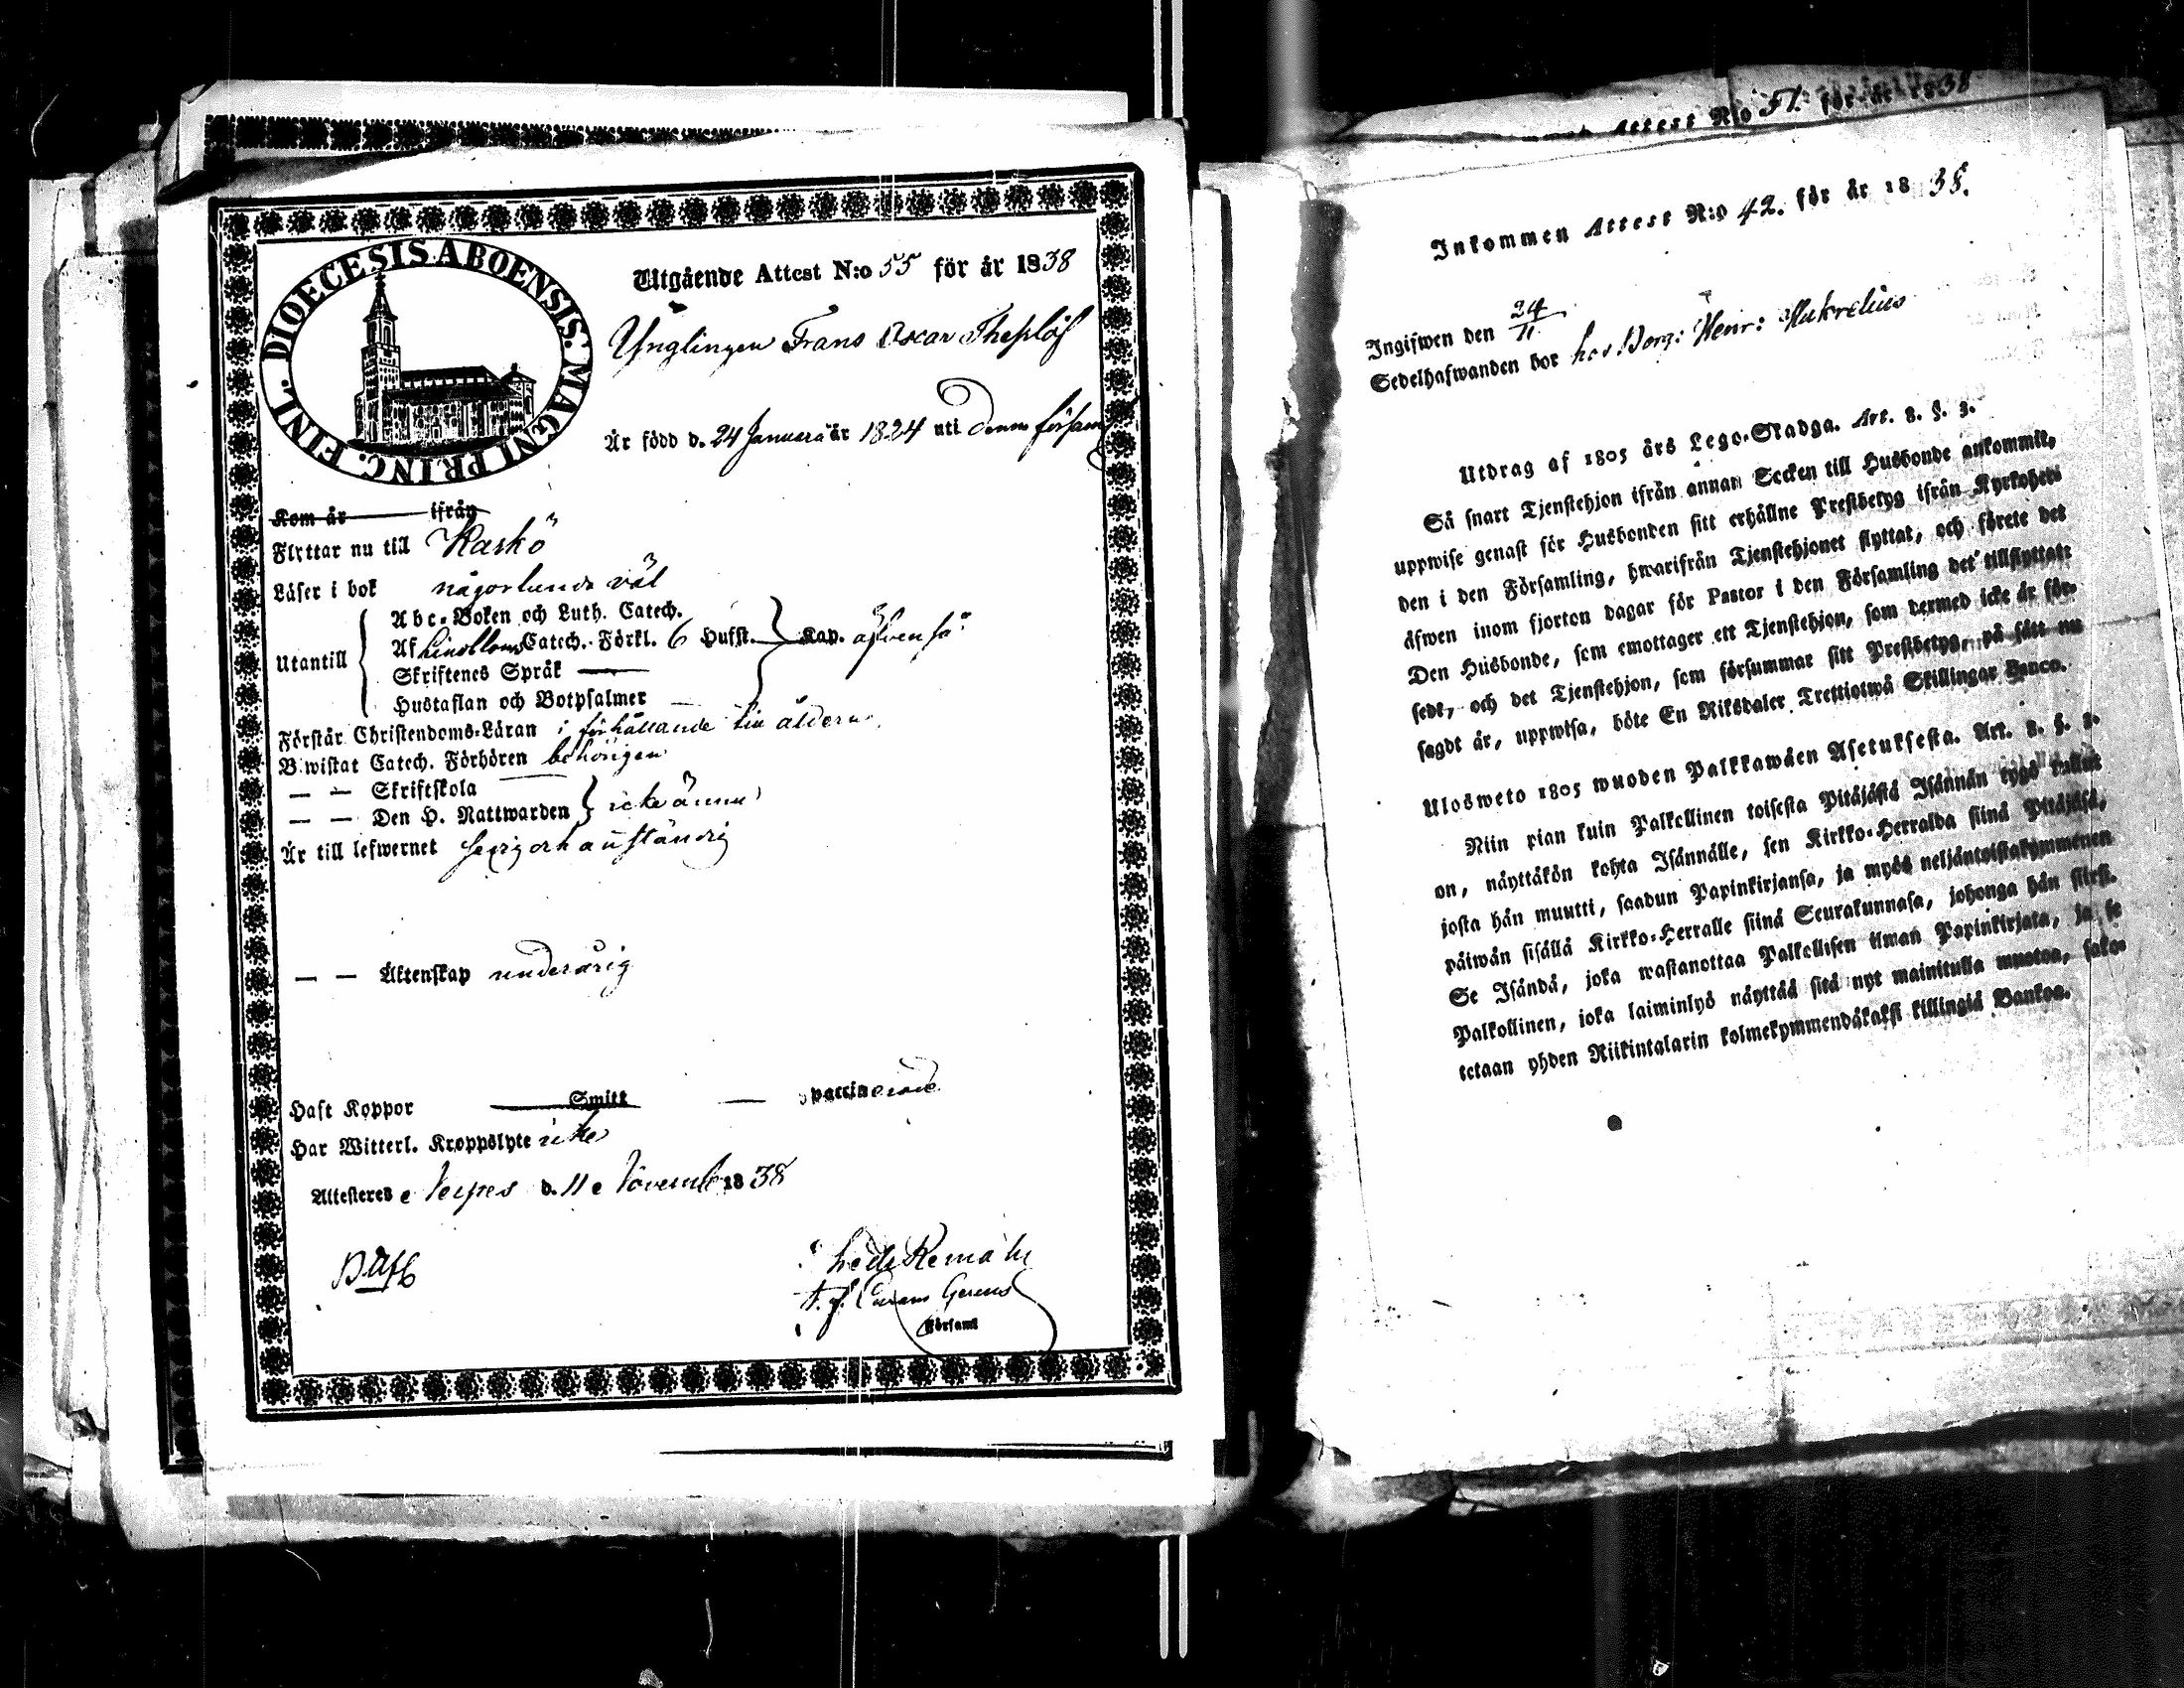 DIOECESIS ABOENSIS. MAGNI PRINC. FINL.
Utgående Attest N:o 55 för år 1838
Ynglingen Frans Oscar Theslöf
Är född d. 24 Januarii år 1824 uti Denna församl
Kom år ifrån
Flyttar nu till Kaskö
Läser i bok någorlunda väl
Utantill
Abc-Boken och Luth. Catech.
Af Lindbloms Catech. Förkl. 6 Hufst. Kap. äfven så
Skriftenes Språk —
Hustaflan och Botpsalmer —
Förstår Christendoms-Läran i förhållande till åldern
Bewistat Catech. Förhören behörigen
— — Skriftskola
— — Den H. Nattwarden icke ännu
Är till lefwernet sedig och anständig
— — Äktenskap underårig
Haft Koppor Smitt — vaccinerad
Har Witterl. Kroppslyte icke
Attesteras d. 11 November 1838
Församl
Attest N:o 51. för år 1838
Inkommen Attest N:o 42. för år 1838.
Ingifwen den 24/11
Sedelhafwanden bor hos Borg: Henr:
Utdrag af 1805 års Lego-Stadga. Art. 8. §. 3.
Så snart Tjenstehjon ifrån annan Socken till Husbonde ankommit,
uppwise genast för Husbonden sitt erhållne Prestbetyg ifrån Kyrkoherd
den i den Församling, hwarifrån Tjenstehjonet flyttat, och förete det
äfwen inom fjorton dagar för Pastor i den Församling det tillflyttat:
Den Husbonde, som emottager ett Tjenstehjon, som dermed icke är för-
sedt, och det Tjenstehjon, som försummar sitt Prestbetyg, på sätt nu
sagdt är, uppwisa, böte En Riksdaler Trettiotwå Skillingar Banco.
Ulosweto 1805 wuoden Palkkawäen Asetuksesta. Art. 8. §. 3.
Niin pian kuin Palkollinen toisesta Pitäjästä Isännän tygö tullut
on, näyttäkön kohta Isännälle, sen Kirkko-Herralda siinä Pitäjäsä,
josta hän muutti, saadun Papinkirjansa, ja myös neljäntoistakymmenen
päiwän sisällä Kirkko-Herralle siinä Seurakunnasa, johonga hän siirsi.
Se Isändä, joka wastanottaa Palkollisen ilman Papinkirjata, ja se
Palkollinen, joka laiminlyö näyttää sitä nyt mainitulla muotoa, sako-
tetaan yhden Riikintalarin kolmekymmendäkaksi killingiä Bankoa.